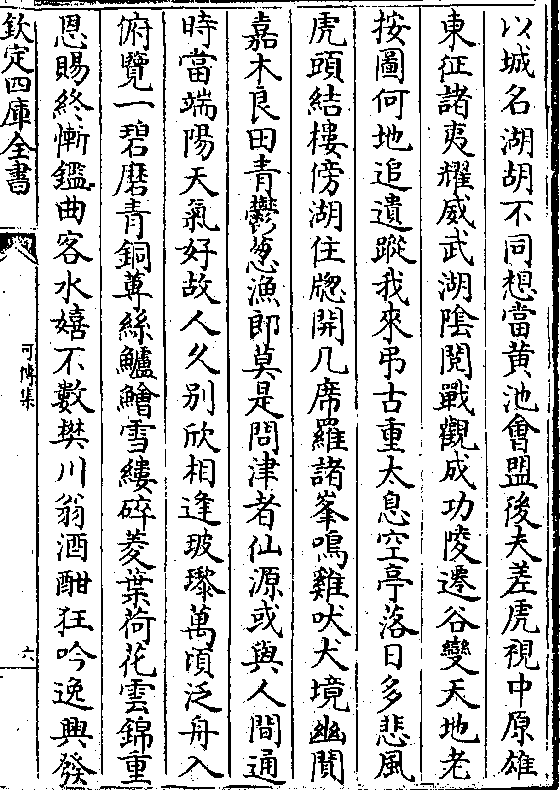 以城名湖胡不同想當黄池會盟後夫差虎視中原雄
東征諸夷耀威武湖陰閲戰觀成功陵遷谷變天地老
按圖何地追遺蹤我來弔古重太息空亭落日多悲風
虎頭結樓傍湖住牕開几席羅諸峯鳴雞吠犬境幽閴
嘉木良田青鬱葱漁郎莫是問津者仙源或與人間通
時當端陽天氣好故人久别欣相逢玻瓈萬頃泛舟入
俯覽一碧磨青銅蓴絲鱸鱠雪縷碎菱葉荷花雲錦重
恩賜終慚鑑曲客水嬉不數樊川翁酒酣狂吟逸興發
欽定四庫全書
可傳集
六